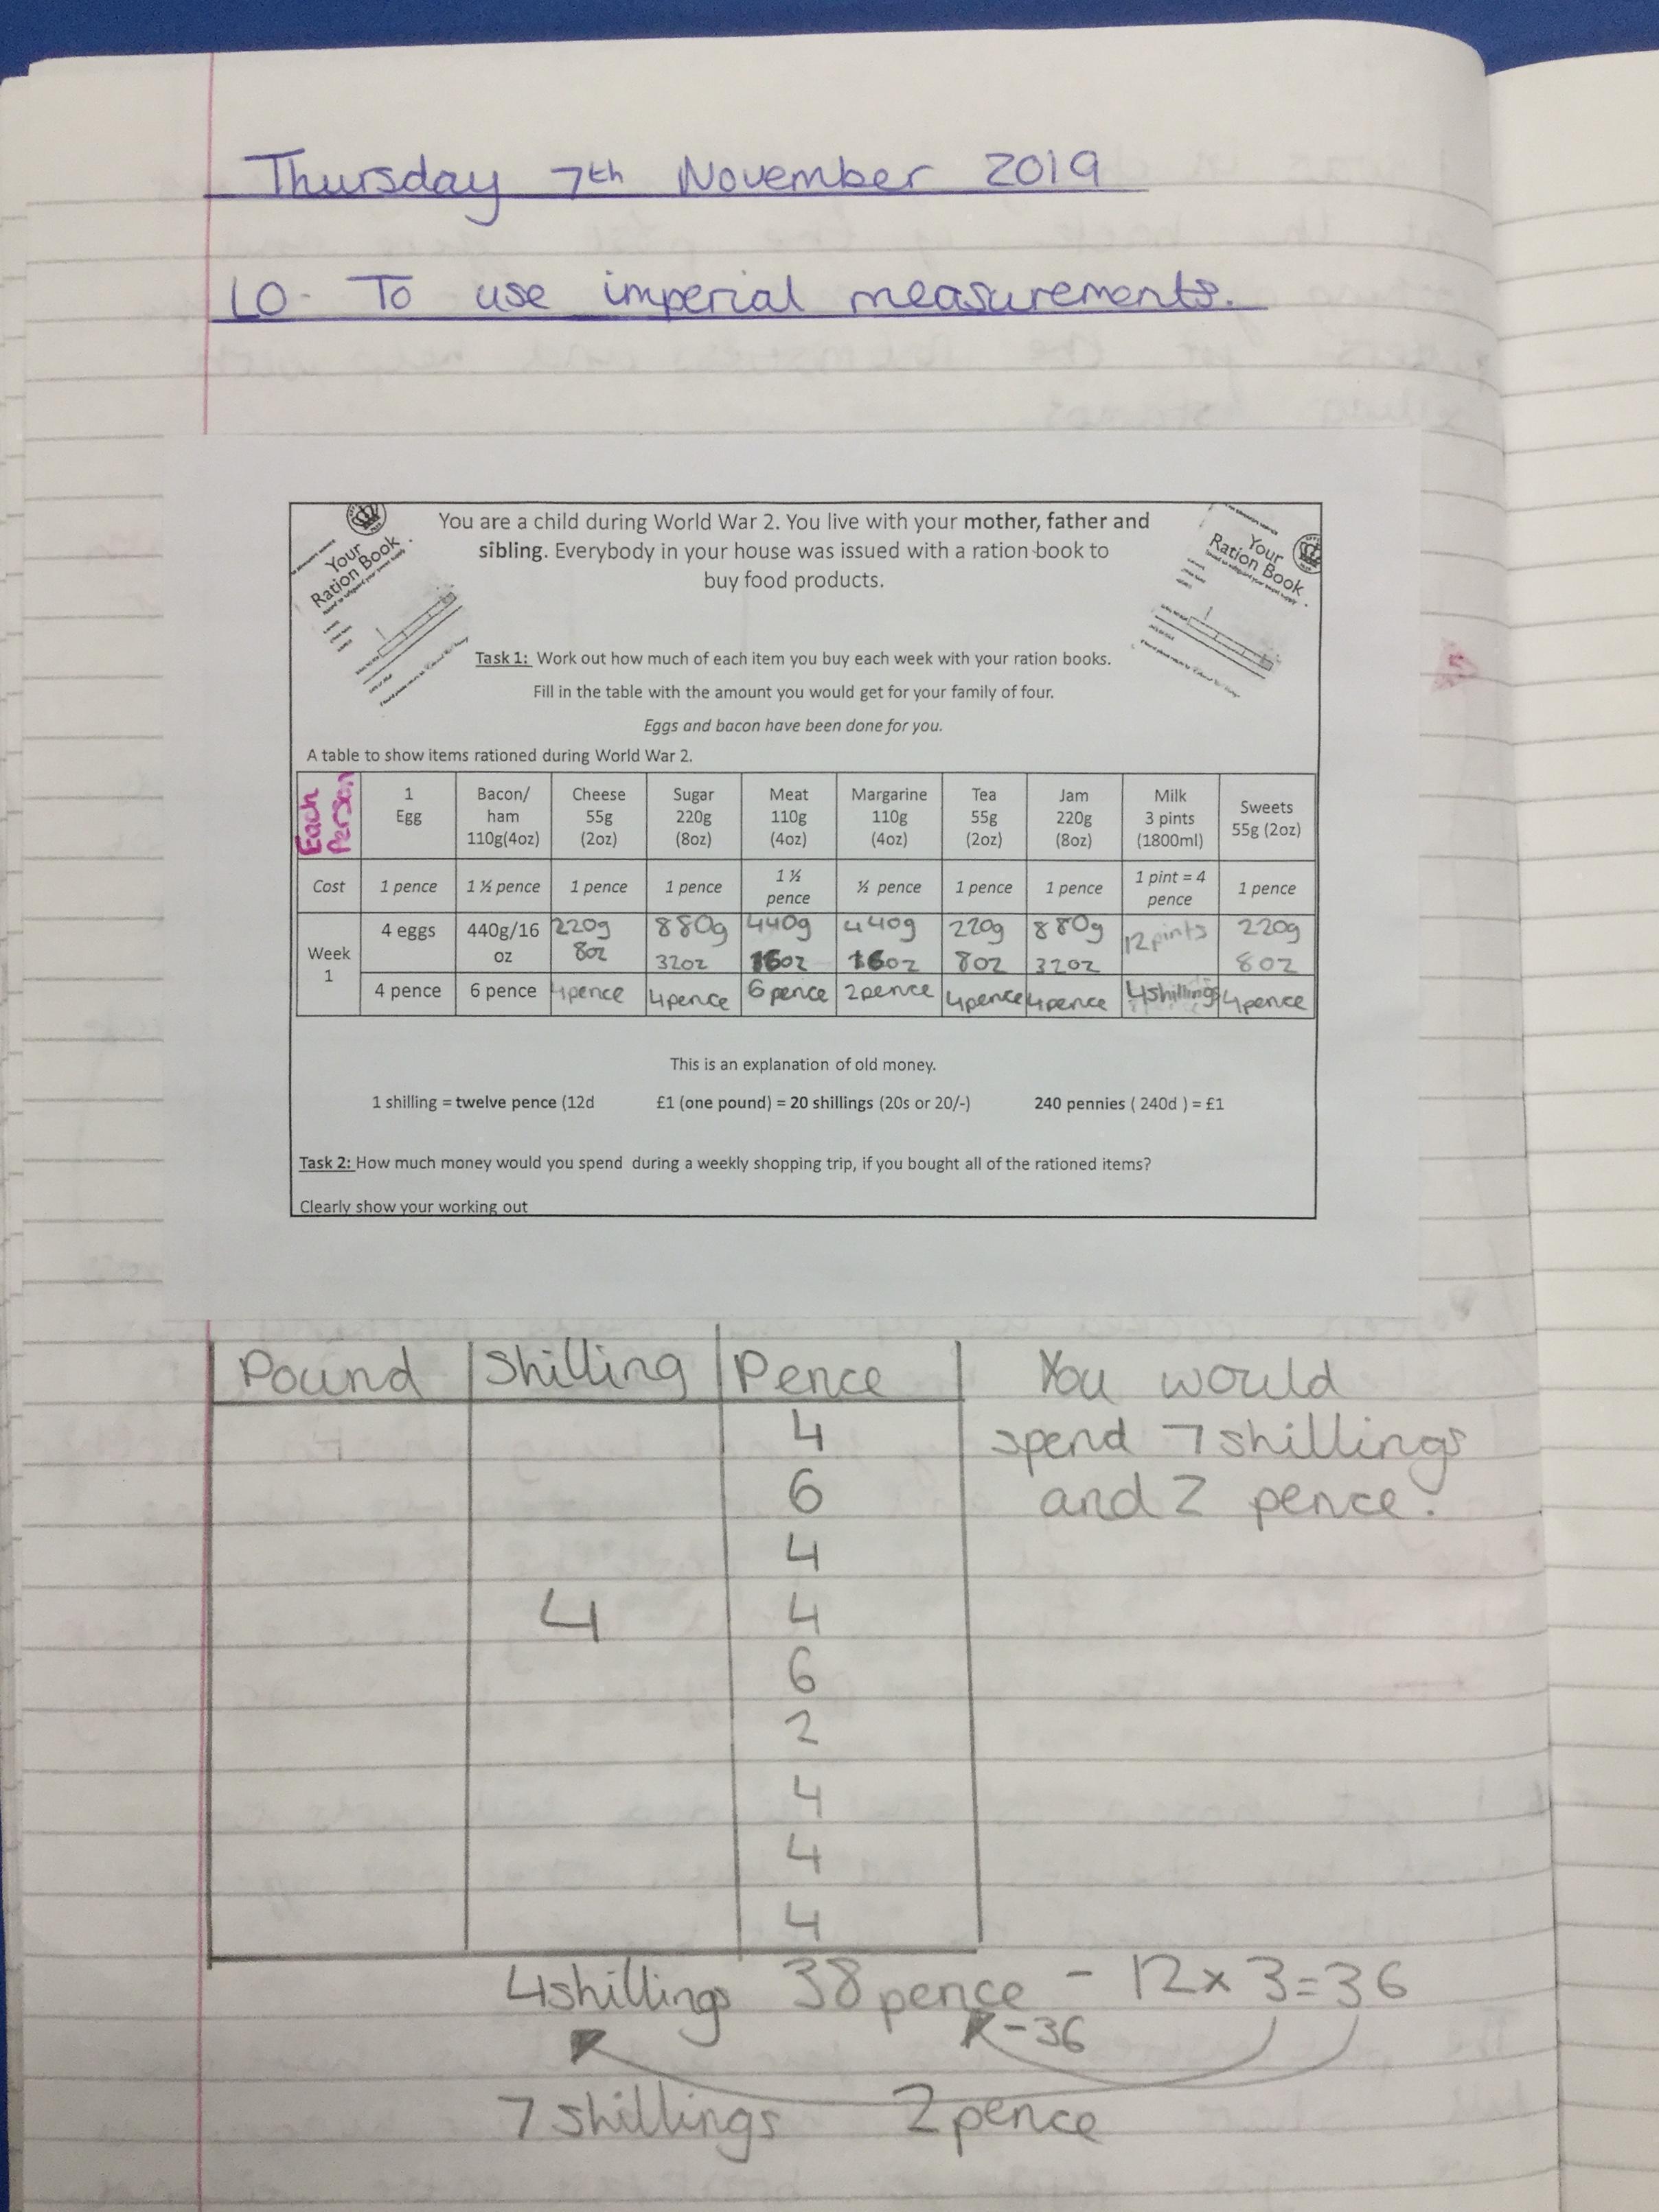 Thursday 7th November 2019
LO- To use imperial measurements.
Your
Ration Book
Your
Ration Book
You are a child during World War 2. You live with your mother, father and
sibling. Everybody in your house was issued with a ration book to
buy food products.
Task 1: Work out how much of each item you buy each week with your ration books.
Fill in the table with the amount you would get for your family of four.
Eggs and bacon have been done for you.
A table to show items rationed during World War 2.
Each Person
1 Egg
Bacon/ ham 110g(4oz)
Cheese 55g (2oz)
Sugar 220g (8oz)
Meat 110g (4oz)
Margarine 110g (4oz)
Tea 55g (2oz)
Jam 220g (8oz)
Milk 3 pints (1800ml)
Sweets 55g (2oz)
Cost 1 pence 1 ½ pence 1 pence 1 pence 1 ½ pence ½ pence 1 pence 1 pence 1 pint = 4 pence 1 pence
Week 1
4 eggs 440g/16 oz 220g 8oz 880g 32oz 440g 16oz 440g 16oz 220g 8oz 880g 32oz 12pints 220g 8oz
4 pence 6 pence 4pence 4pence 6pence 2pence 4pence 4pence 4shillings 4pence
This is an explanation of old money.
1 shilling = twelve pence (12d £1 (one pound) = 20 shillings (20s or 20/-) 240 pennies ( 240d ) = £1
Task 2: How much money would you spend during a weekly shopping trip, if you bought all of the rationed items?
Clearly show your working out
Pound Shilling Pence
4
6
4
4 4
6
2
4
4
4
You would
spend 7shillings
and 2 pence.
4shillings 38pence - 12x3=36
-36
7shillings 2pence